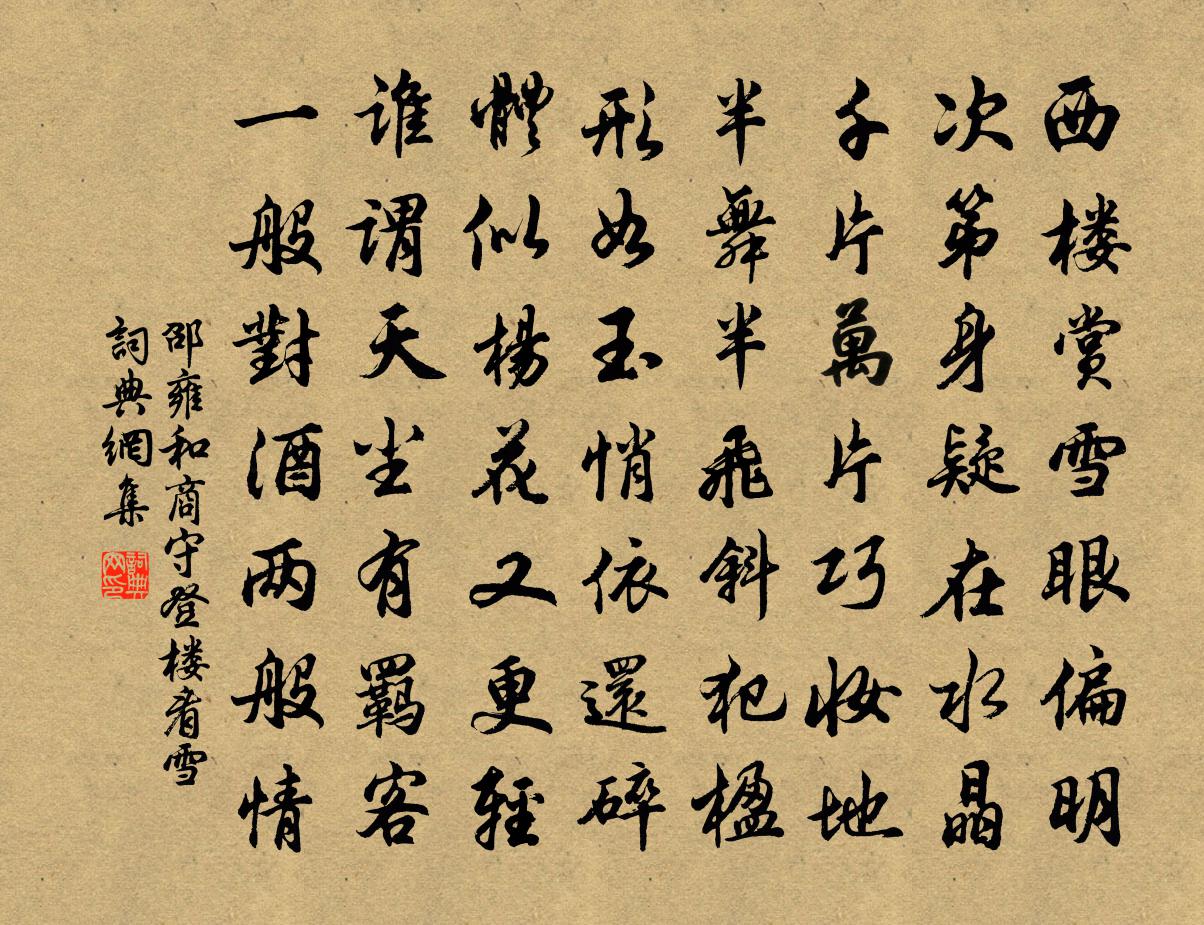 西楼赏雪眼偏明
次第身疑在水晶
千片萬片巧妝地
半舞半飛斜犯楹
形如玉悄依還碎
體似楊花又更輕
誰謂天尘有羁客
一般對酒两般情
邵雍和商守登楼看雪
詞典網集
詞典网印